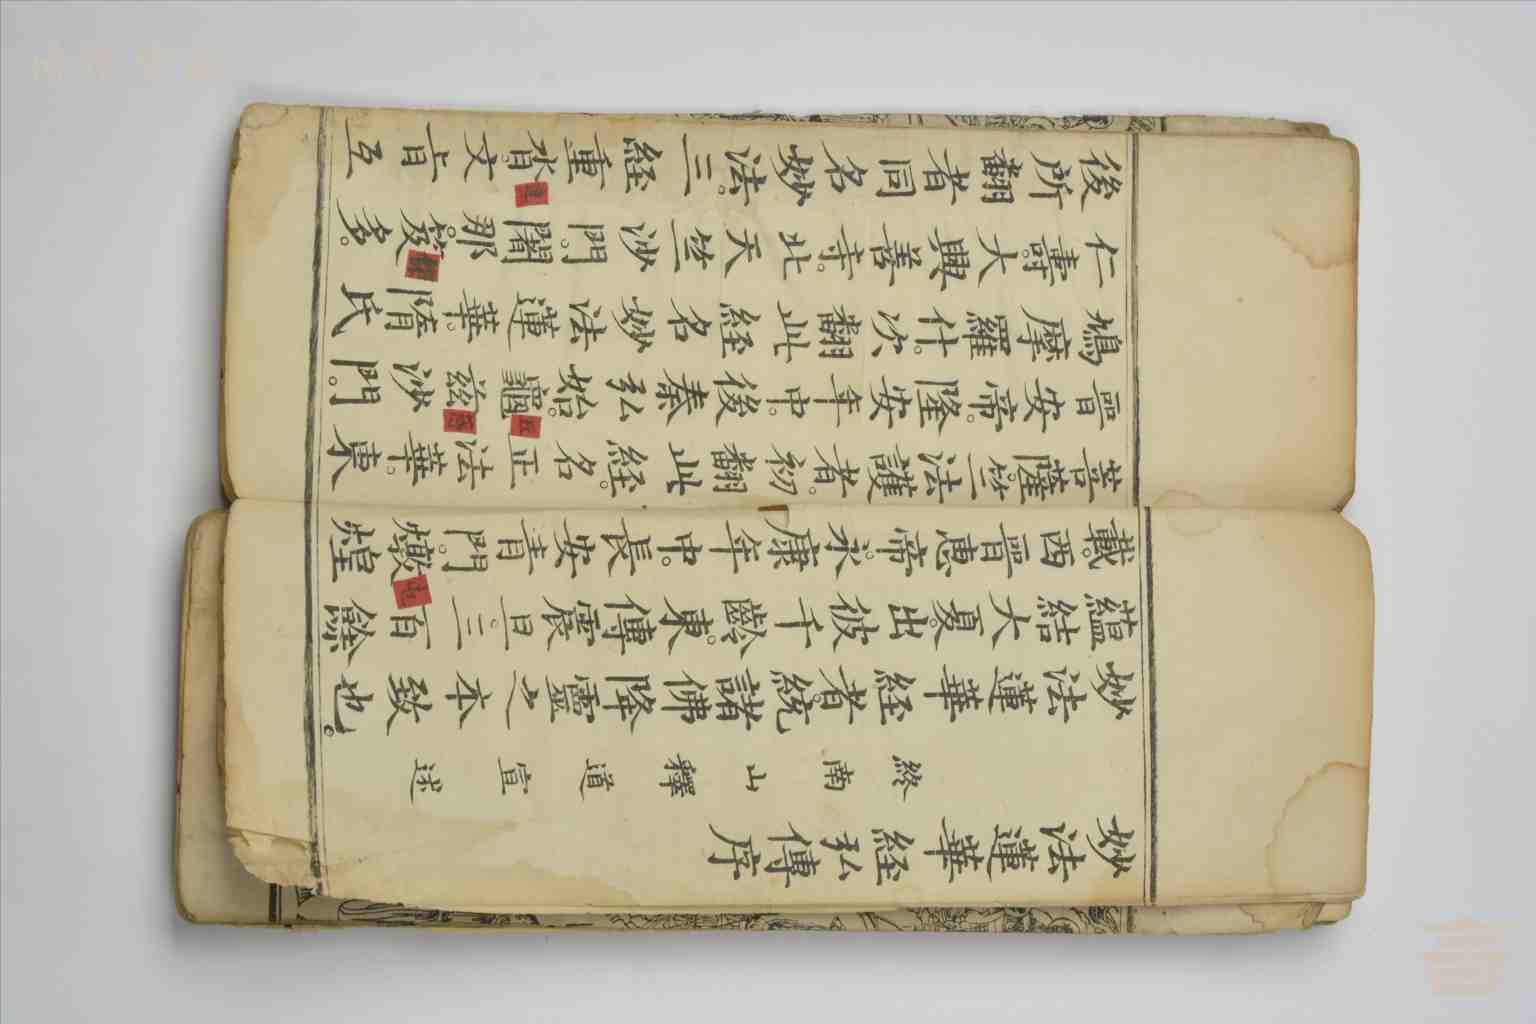 妙法蓮華経弘傳序
終南山釋道宣述
妙法蓮華経者。統諸佛降靈之本致也。
蘊結大夏。出彼千齡。東傳震旦。三百餘
載。西晉惠帝。永康年中。長安青門。燉煌
菩薩。竺法護者。初翻此経。名正法華。東
晉安帝。隆安年中。後秦弘始。龜茲沙門。
鳩摩羅什。次翻此経名妙法蓮華。隋氏
仁壽。大興善寺。北天竺沙門。闍那笈多。
後所翻者同名妙法。三経重沓。文旨互